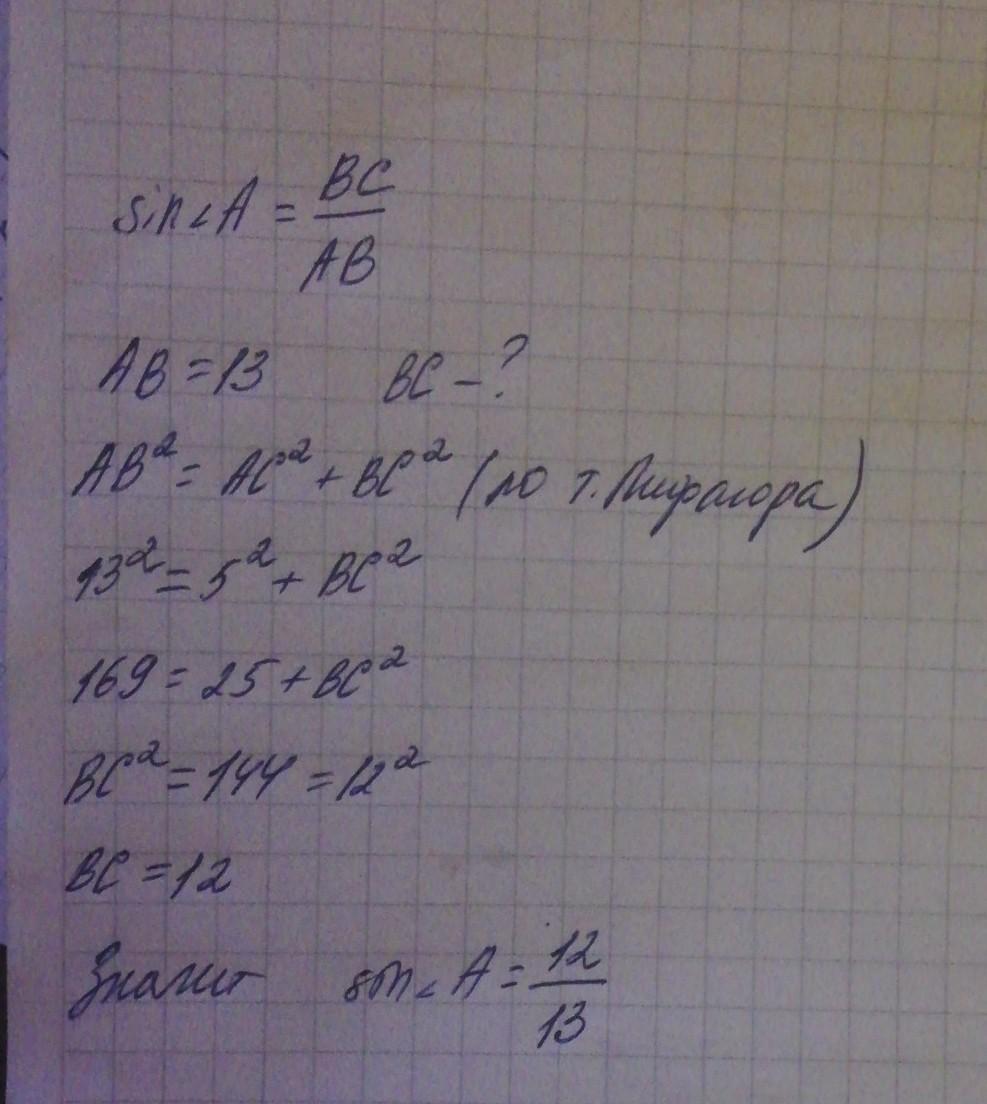 sin∠A = BC/AB
AB = 13 BC - ?
AB² = AC² + BC² (по т. Пифагора)
13² = 5² + BC²
169 = 25 + BC²
BC² = 144 = 12²
BC = 12
Значит sin∠A = 12/13